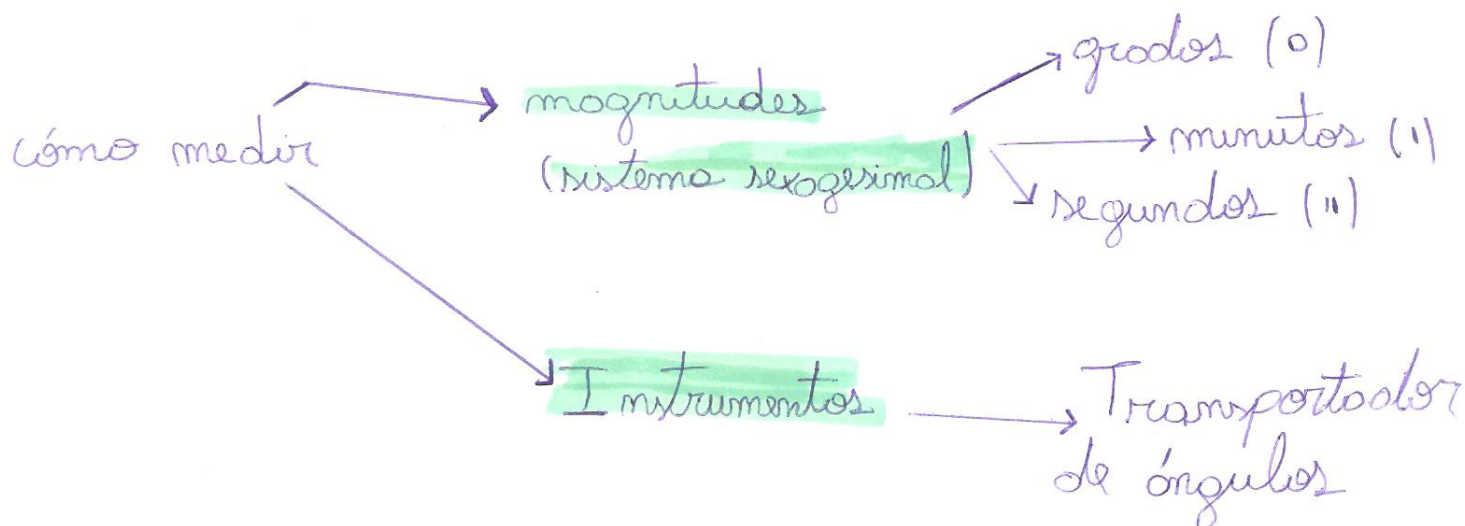 cómo medir
magnitudes
(sistema sexagesimal)
grados (o)
minutos (')
segundos (")
Instrumentos
Transportador
de ángulos